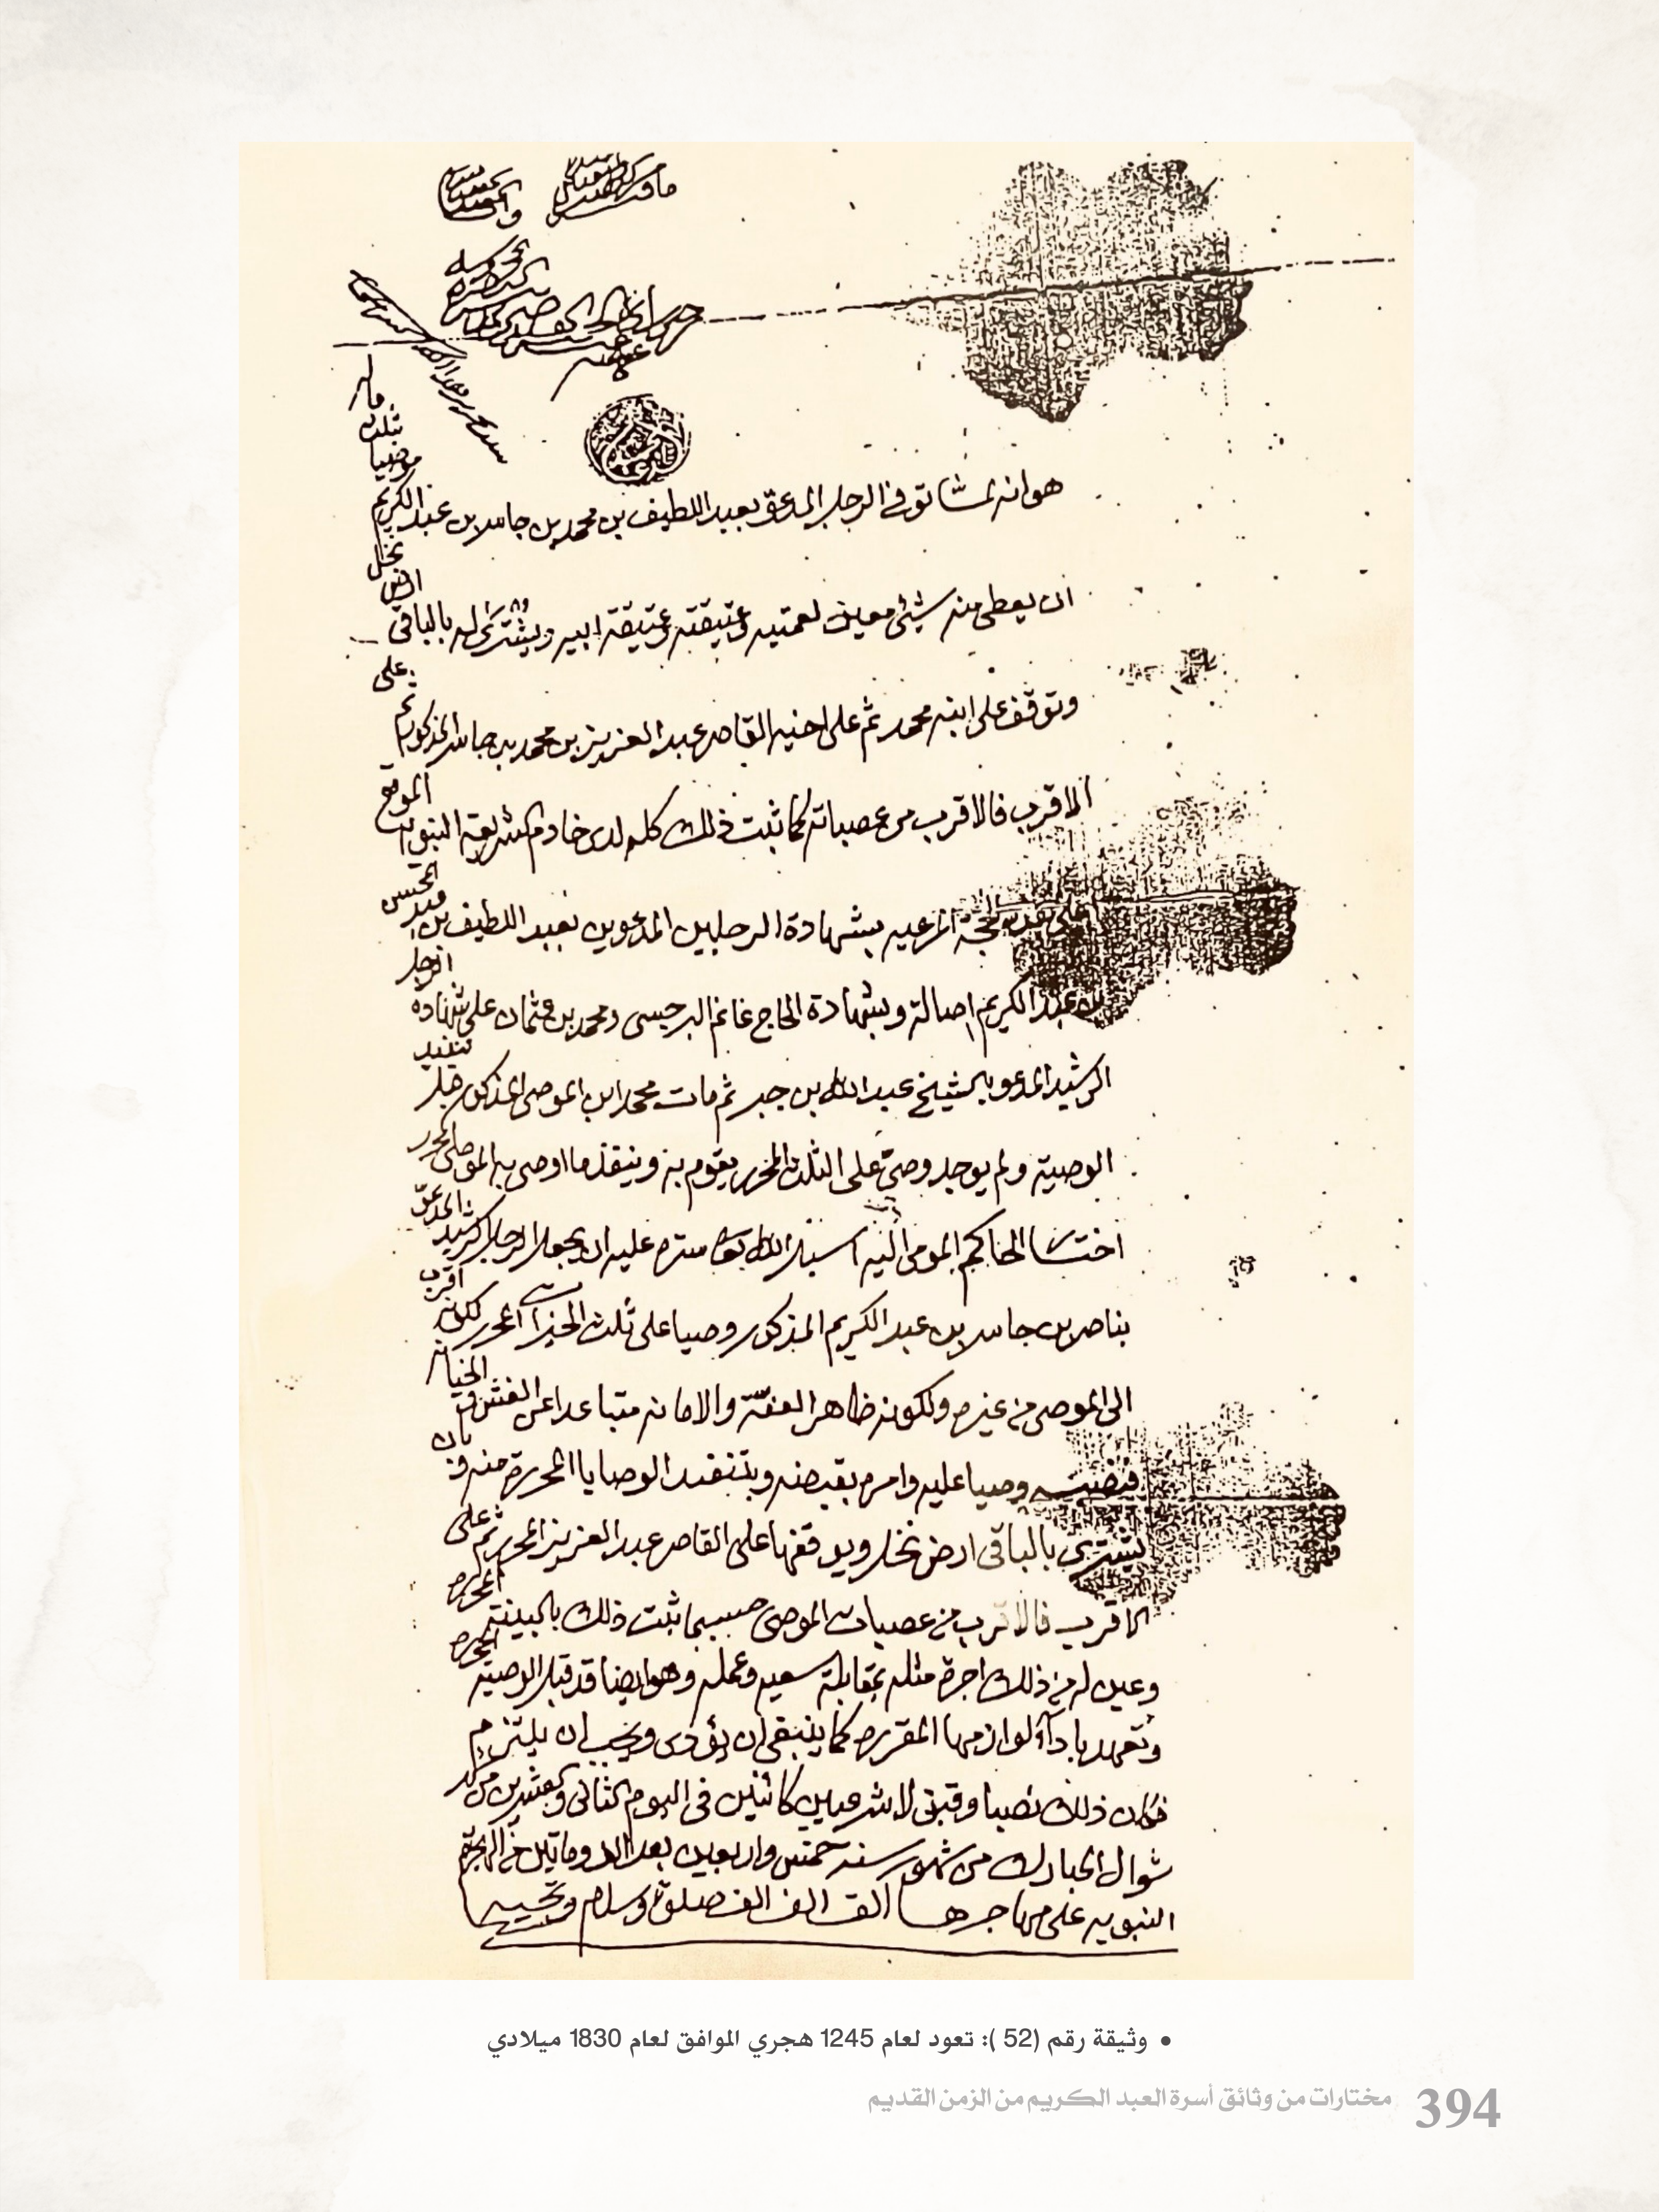 هو انه لمّا توفى الرجل المدعو بعبد اللطيف بن محمد بن جاسر بن عبد الكريم موصيا بثلث ماله
ان يعطى منه شيئ معين لعمتيه وعتيقته وعتيقة ابيه ويشترى له بالباقى ارض نخل
وتوقف على ابنه محمد ثم على اخيه القاصر عبد العزيز بن محمد بن جاسر المذكور ثم على
الاقرب فالاقرب من عصباته كما ثبت ذلك كله لدى خادم الشريعة النبويه الموقع
اعلى هذه الحجة المرعيه بشهادة الرجلين المدعوين بعبد اللطيف بن
بن عبد الكريم اصالة وبشهادة الحاج غانم البرجسى ومحمد بن عثمان على شهادة الرجل
الرشيد المدعو بالشيخ عبد الله بن جبر ثم مات محمد ابن الموصى المذكور قبل تنفيذ
الوصية ولم يوجد وصىّ على الثلث المحرر يقوم به وينفذ ما اوصى به الموصى المحرر
اختار الحاكم المومى اليه اسبل الله تعالى ستره عليه ان يجعل الرجل الرشيد المدعو
بناصر بن جاسر بن عبد الكريم المذكور وصيا على ثلث الخيرات المحرر لكونه اقرب
الى الموصى من غيره ولكونه ظاهر العفّة والامانه متباعدا عن الغش والخيانه
فنصبه وصيا عليه وامره بقبضه وبتنفيذ الوصايا المحررة منه وبان
يشترى بالباقى ارض نخل ويوقفها على القاصر عبد العزيز المحرر ثم على
الاقرب فالاقرب من عصبات الموصى حسبما ثبت ذلك بالبينة المحرره
وعين له من ذلك اجرة مثله بمقابلة سعيه وعمله وهو ايضا قد قبل الوصية المحرره
وتعهد بادآء لوازمها المقرره كما ينبغى ان يؤدى ويجب ان يلتزم
فكان ذلك نصبا وقبولا شرعيين كائنين فى اليوم الثانى والعشرين من شهر
شوال المبارك من شهور سنة خمس واربعين بعد الالف ومائتين من الهجرة
النبويه على مهاجرها الف الف صلوة وسلام وتحيه
• وثيقة رقم (52 ): تعود لعام 1245 هجري الموافق لعام 1830 ميلادي
394 مختارات من وثائق أسرة العبد الكريم من الزمن القديم